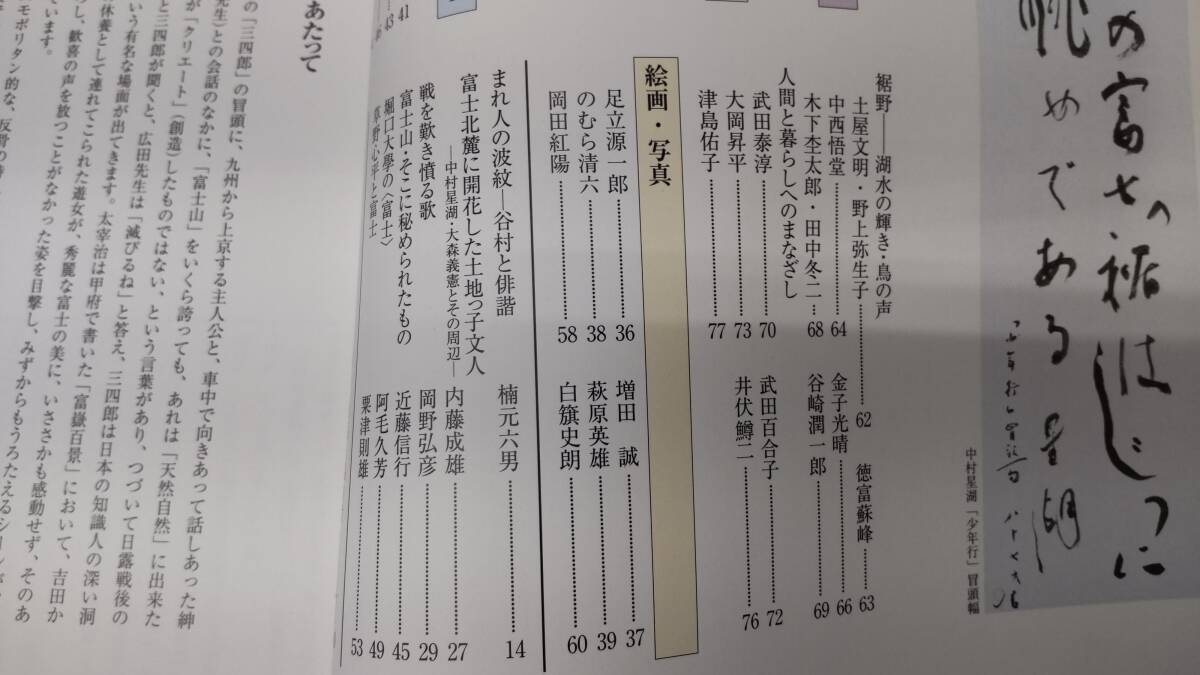 の富士の裾はじつに
眺めである星湖
中村星湖「少年行」冒頭幅
裾野――湖水の輝き・鳥の声
土屋文明・野上弥生子……62
徳富蘇峰……63
中西悟堂……64
金子光晴……66
木下杢太郎・田中冬二…68
谷崎潤一郎……69
人間と暮らしへのまなざし
武田泰淳……70
武田百合子……72
大岡昇平……73
井伏鱒二……76
津島佑子……77
絵画・写真
足立源一郎……36
増田 誠……37
のむら清六……38
萩原英雄……39
岡田紅陽……58
白籏史朗……60
まれ人の波紋―谷村と俳諧
楠元六男……14
富士北麓に開花した土地っ子文人
―中村星湖・大森義憲とその周辺―
内藤成雄……27
戦を歎き憤る歌
岡野弘彦……29
富士山・そこに秘められたもの
近藤信行……45
堀口大學の〈富士〉
阿毛久芳……49
草野心平と富士
粟津則雄……53
41
43
46
あたって
の「三四郎」の冒頭に、九州から上京する主人公と、車中で向きあって話しあった紳
先生)との会話のなかに、「富士山」をいくら誇っても、あれは「天然自然」に出来た
が「クリエート」(創造)したものではない、という言葉があり、つづいて日露戦後の
と三四郎が聞くと、広田先生は「滅びるね」と答え、三四郎は日本の知識人の深い洞
いう有名な場面が出てきます。太宰治は甲府で書いた「富嶽百景」において、吉田か
休養として連れてこられた遊女が、秀麗な富士の美に、いささかも感動せず、そのあ
し、歓喜の声を放つことがなかった姿を目撃し、みずからもうろたえるシーンが
います。
モポリタン的な、反骨の